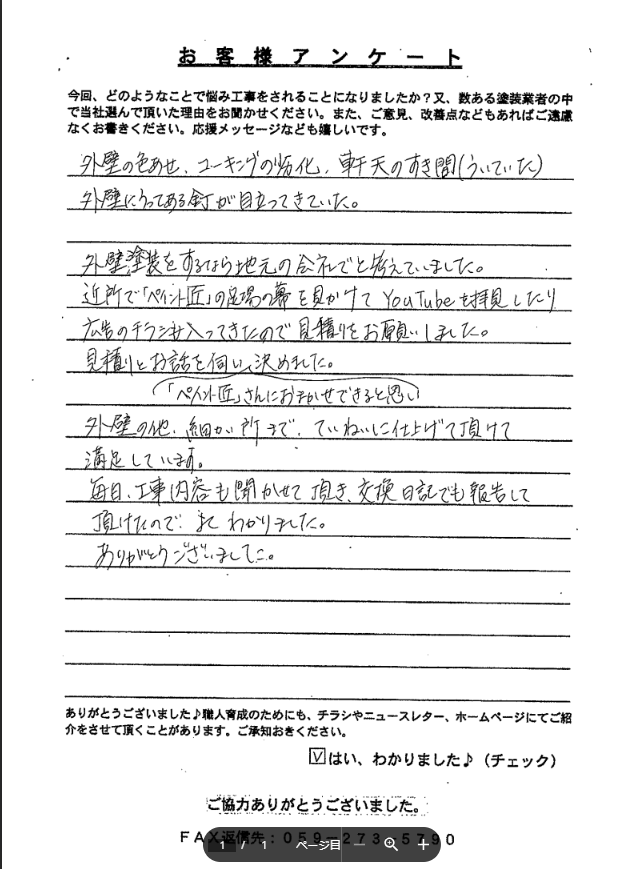 お客様アンケート
今回、どのようなことで悩み工事をされることになりましたか？又、数ある塗装業者の中
で当社選んで頂いた理由をお聞かせください。また、ご意見、改善点などもあればご遠慮
なくお書きください。応援メッセージなども嬉しいです。
外壁の色あせ、コーキングの劣化、軒天のすき間(ういていた)
外壁にうってある釘が目立ってきていた。
外壁塗装をするなら地元の会社でと考えていました。
近所で「ペイント匠」の足場の幕を見かけてYouTubeも拝見したり
広告のチラシも入ってきたので見積りをお願いしました。
見積りとお話を伺い、決めました。
「ペイント匠」さんにおまかせできると思い
外壁の他、細かい所まで、ていねいに仕上げて頂けて
満足しています。
毎日、工事内容も聞かせて頂き、交換日記でも報告して
頂けたので よく わかりました。
ありがとうございました。
ありがとうございました♪職人育成のためにも、チラシやニュースレター、ホームページにてご紹
介をさせて頂くことがあります。ご承知おきください。
☑はい、わかりました♪（チェック）
ご協力ありがとうございました。
FAX返信先：059-273-5790
1 / 1 ページ目